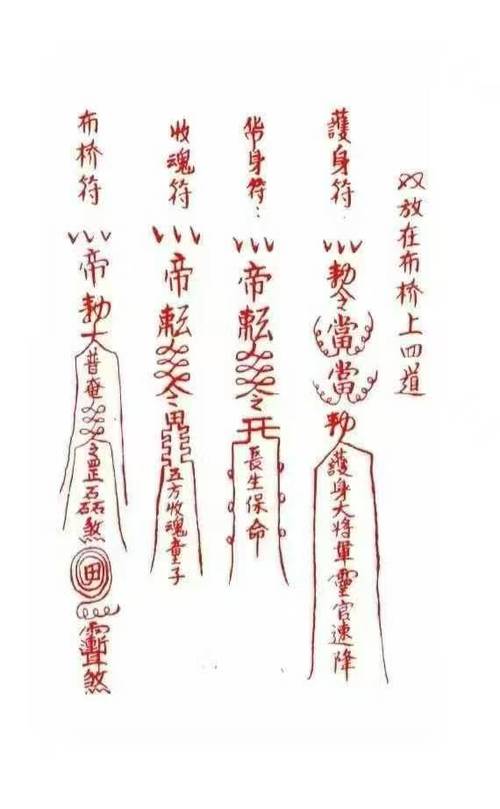 放在布桥上四道
護身符
勅令當當勅
護身大將軍靈官速降
带身符：
帝
令
長生保命
收魂符
帝
令
五方收魂童子
布桥符
帝勅
普奄
罡
煞
田
煞